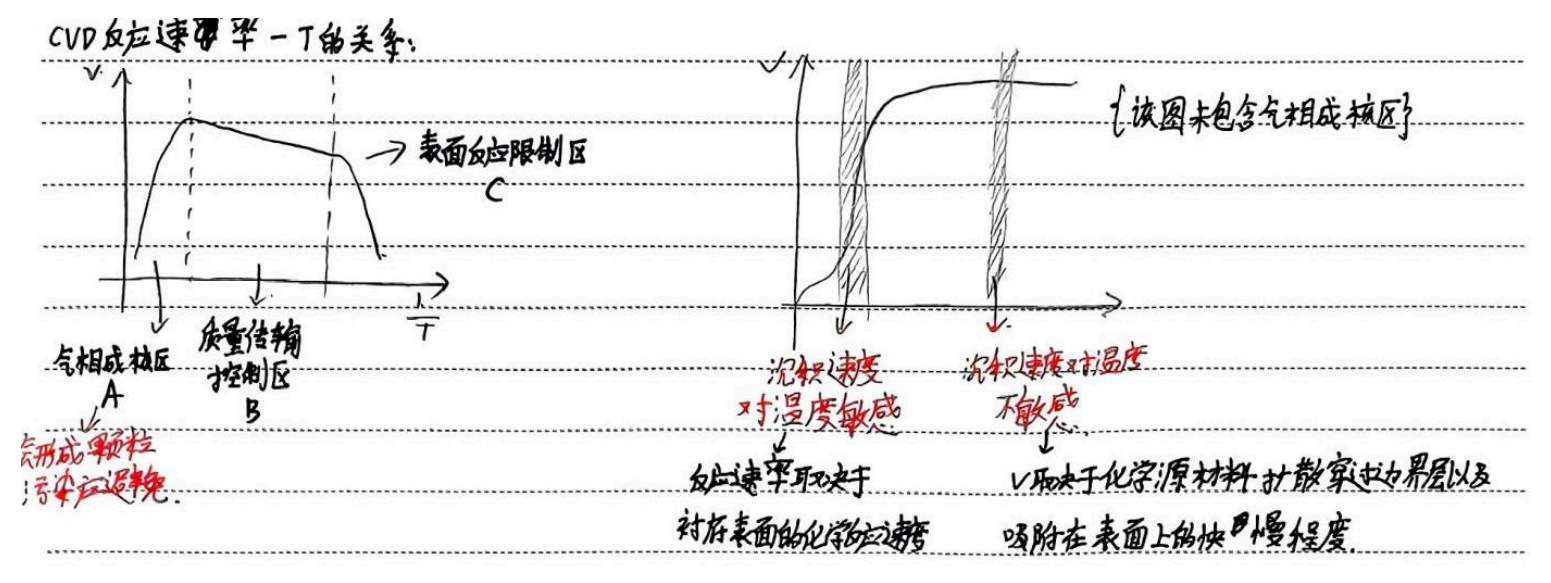 CVD反应速率-T的关系:
V
表面反应限制区
C
1/T
气相成核区
A
质量传输
控制区
B
会形成颗粒
污染应避免.
V
{该图未包含气相成核区}
沉积速度
对温度敏感
沉积速度对温度
不敏感.
反应速率取决于
衬底表面的化学反应速度
V取决于化学源材料扩散穿过边界层以及
吸附在表面上的快慢程度.